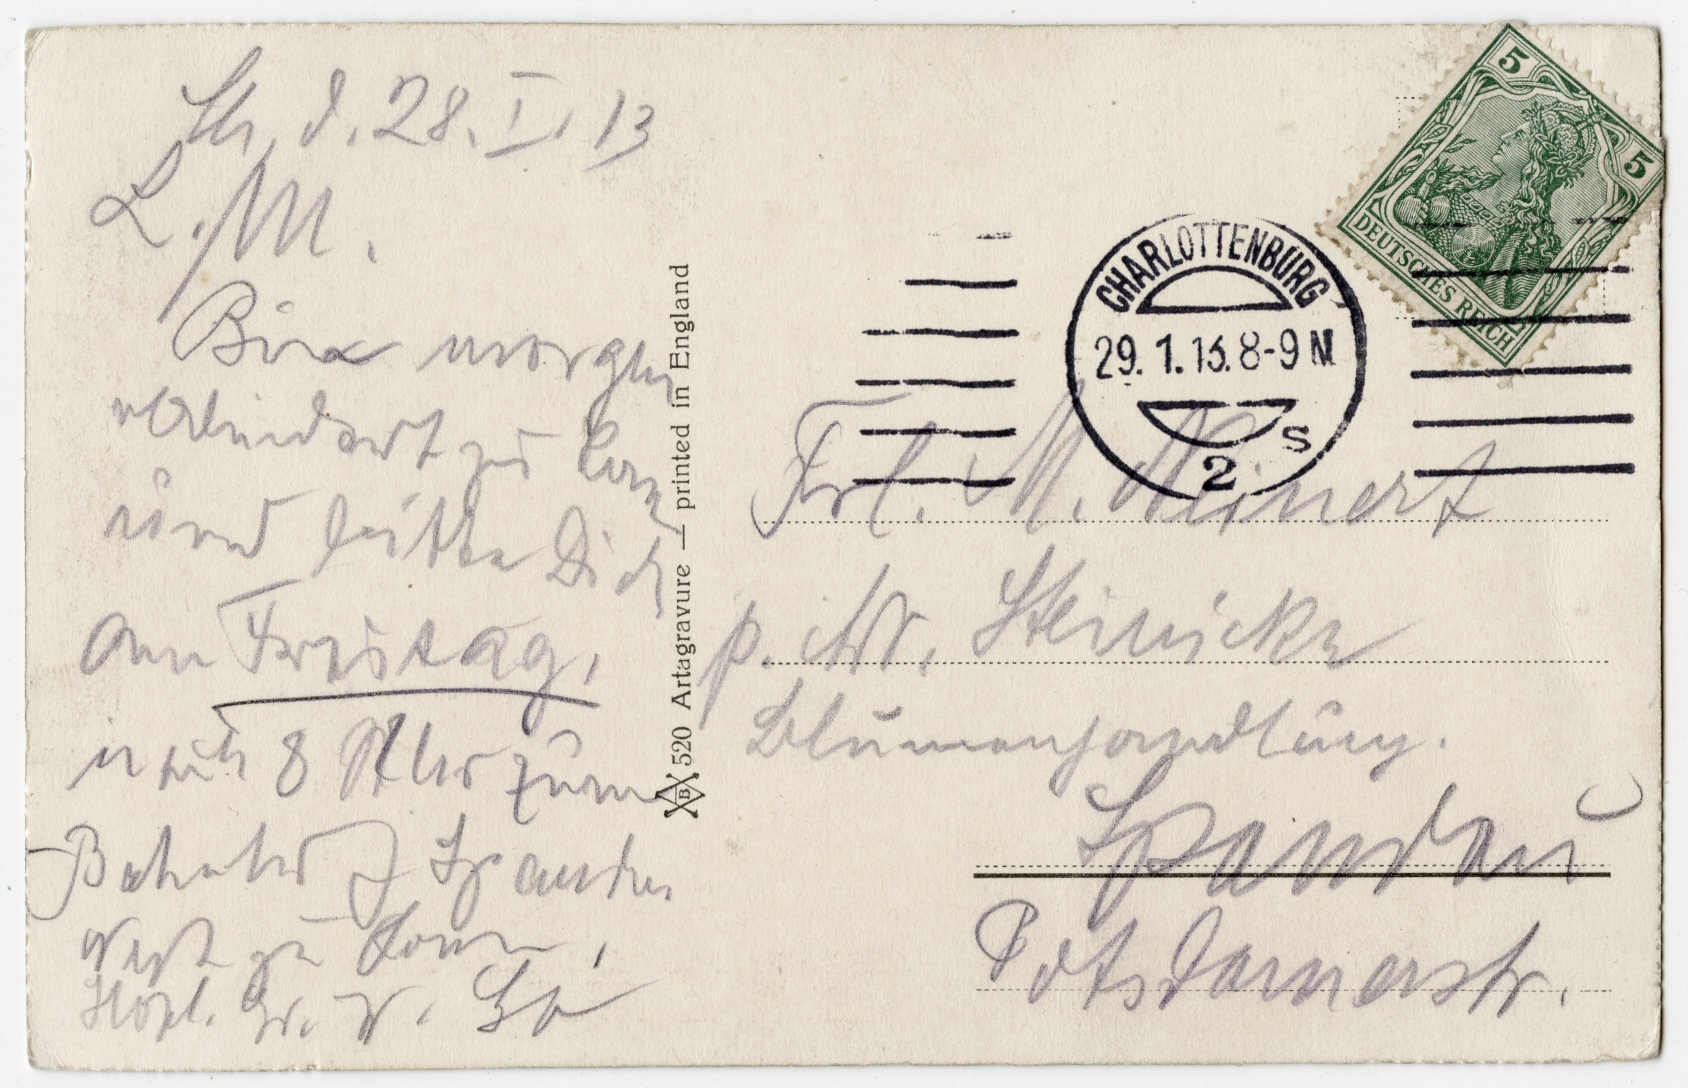 d. 28. I. 13
L. M.
Bin morgen
verhindert zu kom
und bitte Dich
am Freitag,
nach 8 Uhr zum
Bahnhof Spandau
West zu kommen,
Herzl. Gr.
520 Artagravure — printed in England
B
CHARLOTTENBURG
29. 1. 13. 8-9 N
S
2
5
5
DEUTSCHES REICH
Frl. M. Meinert
p. Adr. Steinicke
Blumenhandlung.
Spandau
Potsdamerstr.